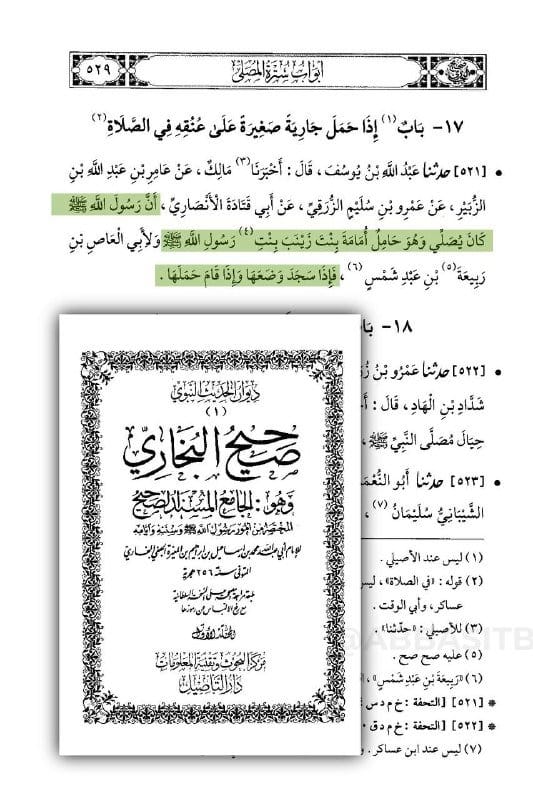 أبواب سترة المصلي
٥٢٩
١٧- بَابٌ(١) إِذَا حَمَلَ جَارِيَةً صَغِيرَةً عَلَى عُنُقِهِ فِي الصَّلَاةِ(٢)
• [٥٢١] حدثنا عَبْدُ اللَّهِ بْنُ يُوسُفَ، قَالَ: أَخْبَرَنَا(٣) مَالِكٌ، عَنْ عَامِرِ بْنِ عَبْدِ اللَّهِ بْنِ
الزُّبَيْرِ، عَنْ عَمْرِو بْنِ سُلَيْمٍ الزُّرَقِيِّ، عَنْ أَبِي قَتَادَةَ الْأَنْصَارِيِّ، أَنَّ رَسُولَ اللَّهِ ﷺ
كَانَ يُصَلِّي وَهُوَ حَامِلٌ أُمَامَةَ بِنْتَ زَيْنَبَ بِنْتِ(٤) رَسُولِ اللَّهِ ﷺ وَلِأَبِي الْعَاصِ بْنِ
رَبِيعَةَ(٥) بْنِ عَبْدِ شَمْسٍ(٦)، فَإِذَا سَجَدَ وَضَعَهَا وَإِذَا قَامَ حَمَلَهَا.
١٨- بَا
• [٥٢٢] حدثنا عَمْرُو بْنُ
شَدَّادِ بْنِ الْهَادِ، قَالَ:
حِيَالَ مُصَلَّى النَّبِيِّ ﷺ،
• [٥٢٣] حدثنا أَبُو النُّعْمَ
الشَّيْبَانِيُّ سُلَيْمَانُ(٧)،
(١) ليس عند الأصيلي.
(٢) قوله: «في الصلاة»، ليس
عساكر، وأبي الوقت.
(٣) للأصيلي: «حدثنا».
(٥) عليه صح صح.
(٦) «رَبِيعَةَ بْنِ عَبْدِ شَمْسٍ»،
* [٥٢١] [التحفة: خ م د س
* [٥٢٢] [التحفة: خ م د ق
(٧) ليس عند ابن عساكر.
ديوان الحديث النبوي
(١)
صحيح البخاري
وهو: الجامع المسند الصحيح
المختصر من أمور رسول الله ﷺ وسننه وأيامه
للإمام أبي عبد الله محمد بن إسماعيل بن إبراهيم بن المغيرة الجعفي البخاري
المتوفى سنة ٢٥٦ هجرية
المجلد الأول
مركز البحوث وتقنية المعلومات
دار التأصيل